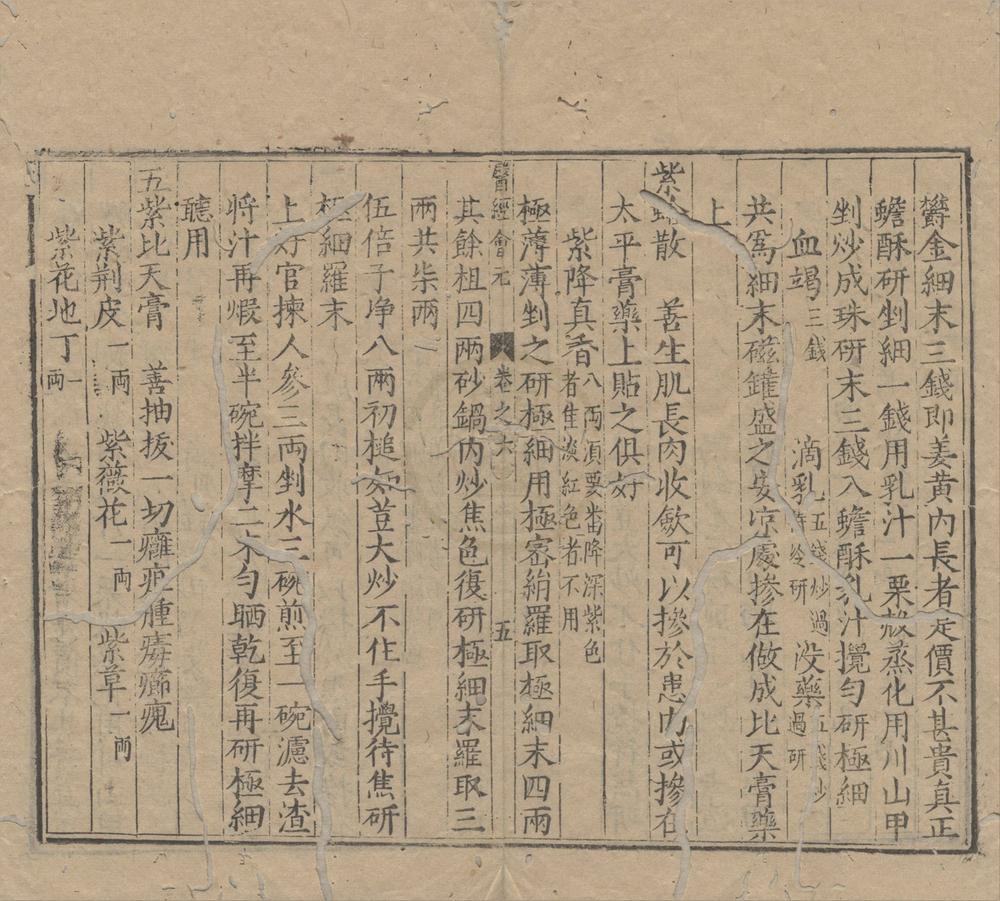 欝金細末三錢即姜黃內長者是價不甚貴真正
蟾酥研剉細一錢用乳汁一栗殼蒸化用川山甲
剉炒成珠研末三錢入蟾酥乳汁攪勻研極細
血竭三錢 滴乳五錢炒過待冷研 沒藥五錢炒過研
共爲細末磁鑵盛之安凉處摻在做成比天膏藥
上
紫 散 善生肌長肉收歛可以摻於患內或摻在
太平膏藥上貼之俱好
紫降真香八兩須要畨降深紫色者生淡紅色者不用
極薄薄剉之研極細用極密絹羅取極細末四兩
醫經會元 卷之六 五
其餘柤四兩砂鍋內炒焦色復研極細末羅取三
兩共柒兩
伍倍子净八兩初槌如荳大炒不住手攪待焦研
極細羅末
上好官揀人參三両剉水三碗煎至一碗濾去渣
將汁再煆至半碗拌摩二末勻晒乾復再研極細
聽用
五紫比天膏 善抽拔一切癰疽腫癤瘰
紫荆皮一両 紫薇花一両 紫草一両
紫花地丁一両